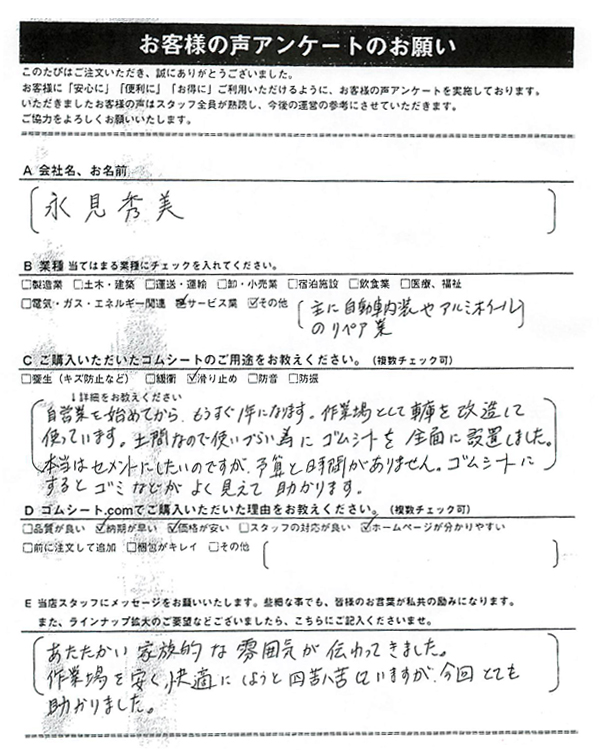 お客様の声アンケートのお願い
このたびはご注文いただき、誠にありがとうございました。
お客様に「安心に」「便利に」「お得に」ご利用いただけるように、お客様の声アンケートを実施しております。
いただきましたお客様の声はスタッフ全員が熟読し、今後の運営の参考にさせていただきます。
ご協力をよろしくお願いいたします。
A 会社名、お名前
永見秀美
B 業種 当てはまる業種にチェックを入れてください。
□製造業 □土木・建築 □運送・運輸 □卸・小売業 □宿泊施設 □飲食業 □医療、福祉
□電気・ガス・エネルギー関連 ☑サービス業 ☑その他 (主に自動車内装やアルミホイール)
のリペア業
C ご購入いただいたゴムシートのご用途をお教えください。(複数チェック可)
□養生(キズ防止など) □緩衝 ☑滑り止め □防音 □防振
↓詳細をお教えください
自営業を始めてから、もうすぐ1年になります。作業場として車庫を改造して
使っています。土間なので使いづらい為にゴムシートを全面に設置しました。
本当はセメントにしたいのですが、予算と時間がありません。ゴムシートに
するとゴミなどがよく見えて助かります。
D ゴムシート.comでご購入いただいた理由をお教えください。(複数チェック可)
□品質が良い ☑納期が早い ☑価格が安い □スタッフの対応が良い ☑ホームページが分かりやすい
□前に注文して追加 □梱包がキレイ □その他
E 当店スタッフにメッセージをお願いいたします。些細な事でも、皆様のお言葉が私共の励みになります。
また、ラインナップ拡大のご要望などございましたら、こちらにご記入くださいませ。
あたたかい家族的な雰囲気が伝わってきました。
作業場を安く、快適にしようと四苦八苦していますが、今回とても
助かりました。